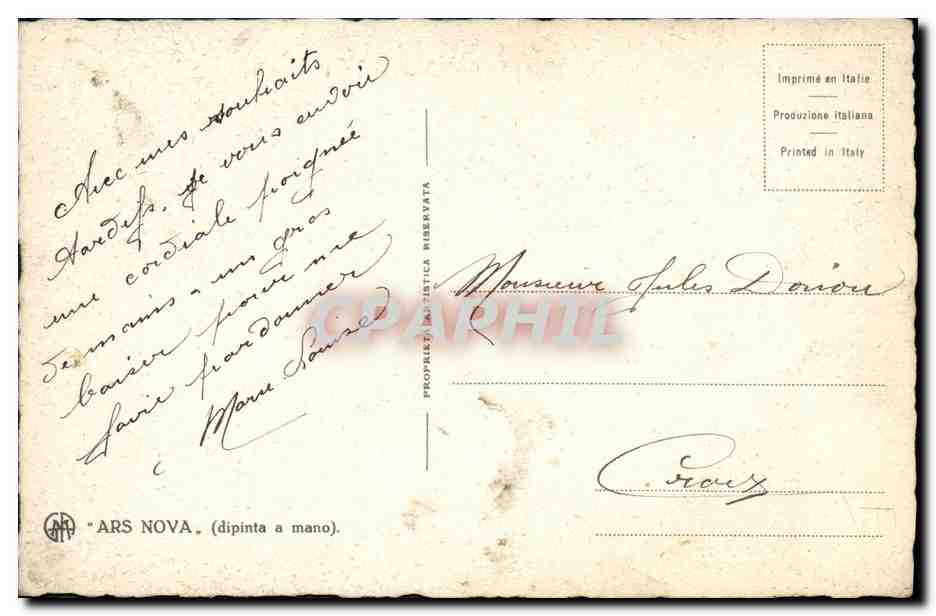 Avec mes souhaits
tardifs, je vous envoie
une cordiale poignée
de mains - un gros
baiser pour me
faire pardonner
Marie Louise
PROPRIETÀ ARTISTICA RISERVATA
Imprimé en Italie
Produzione italiana
Printed in Italy
Monsieur Jules
Croix
CPAPHIL
"ARS NOVA„ (dipinta a mano).